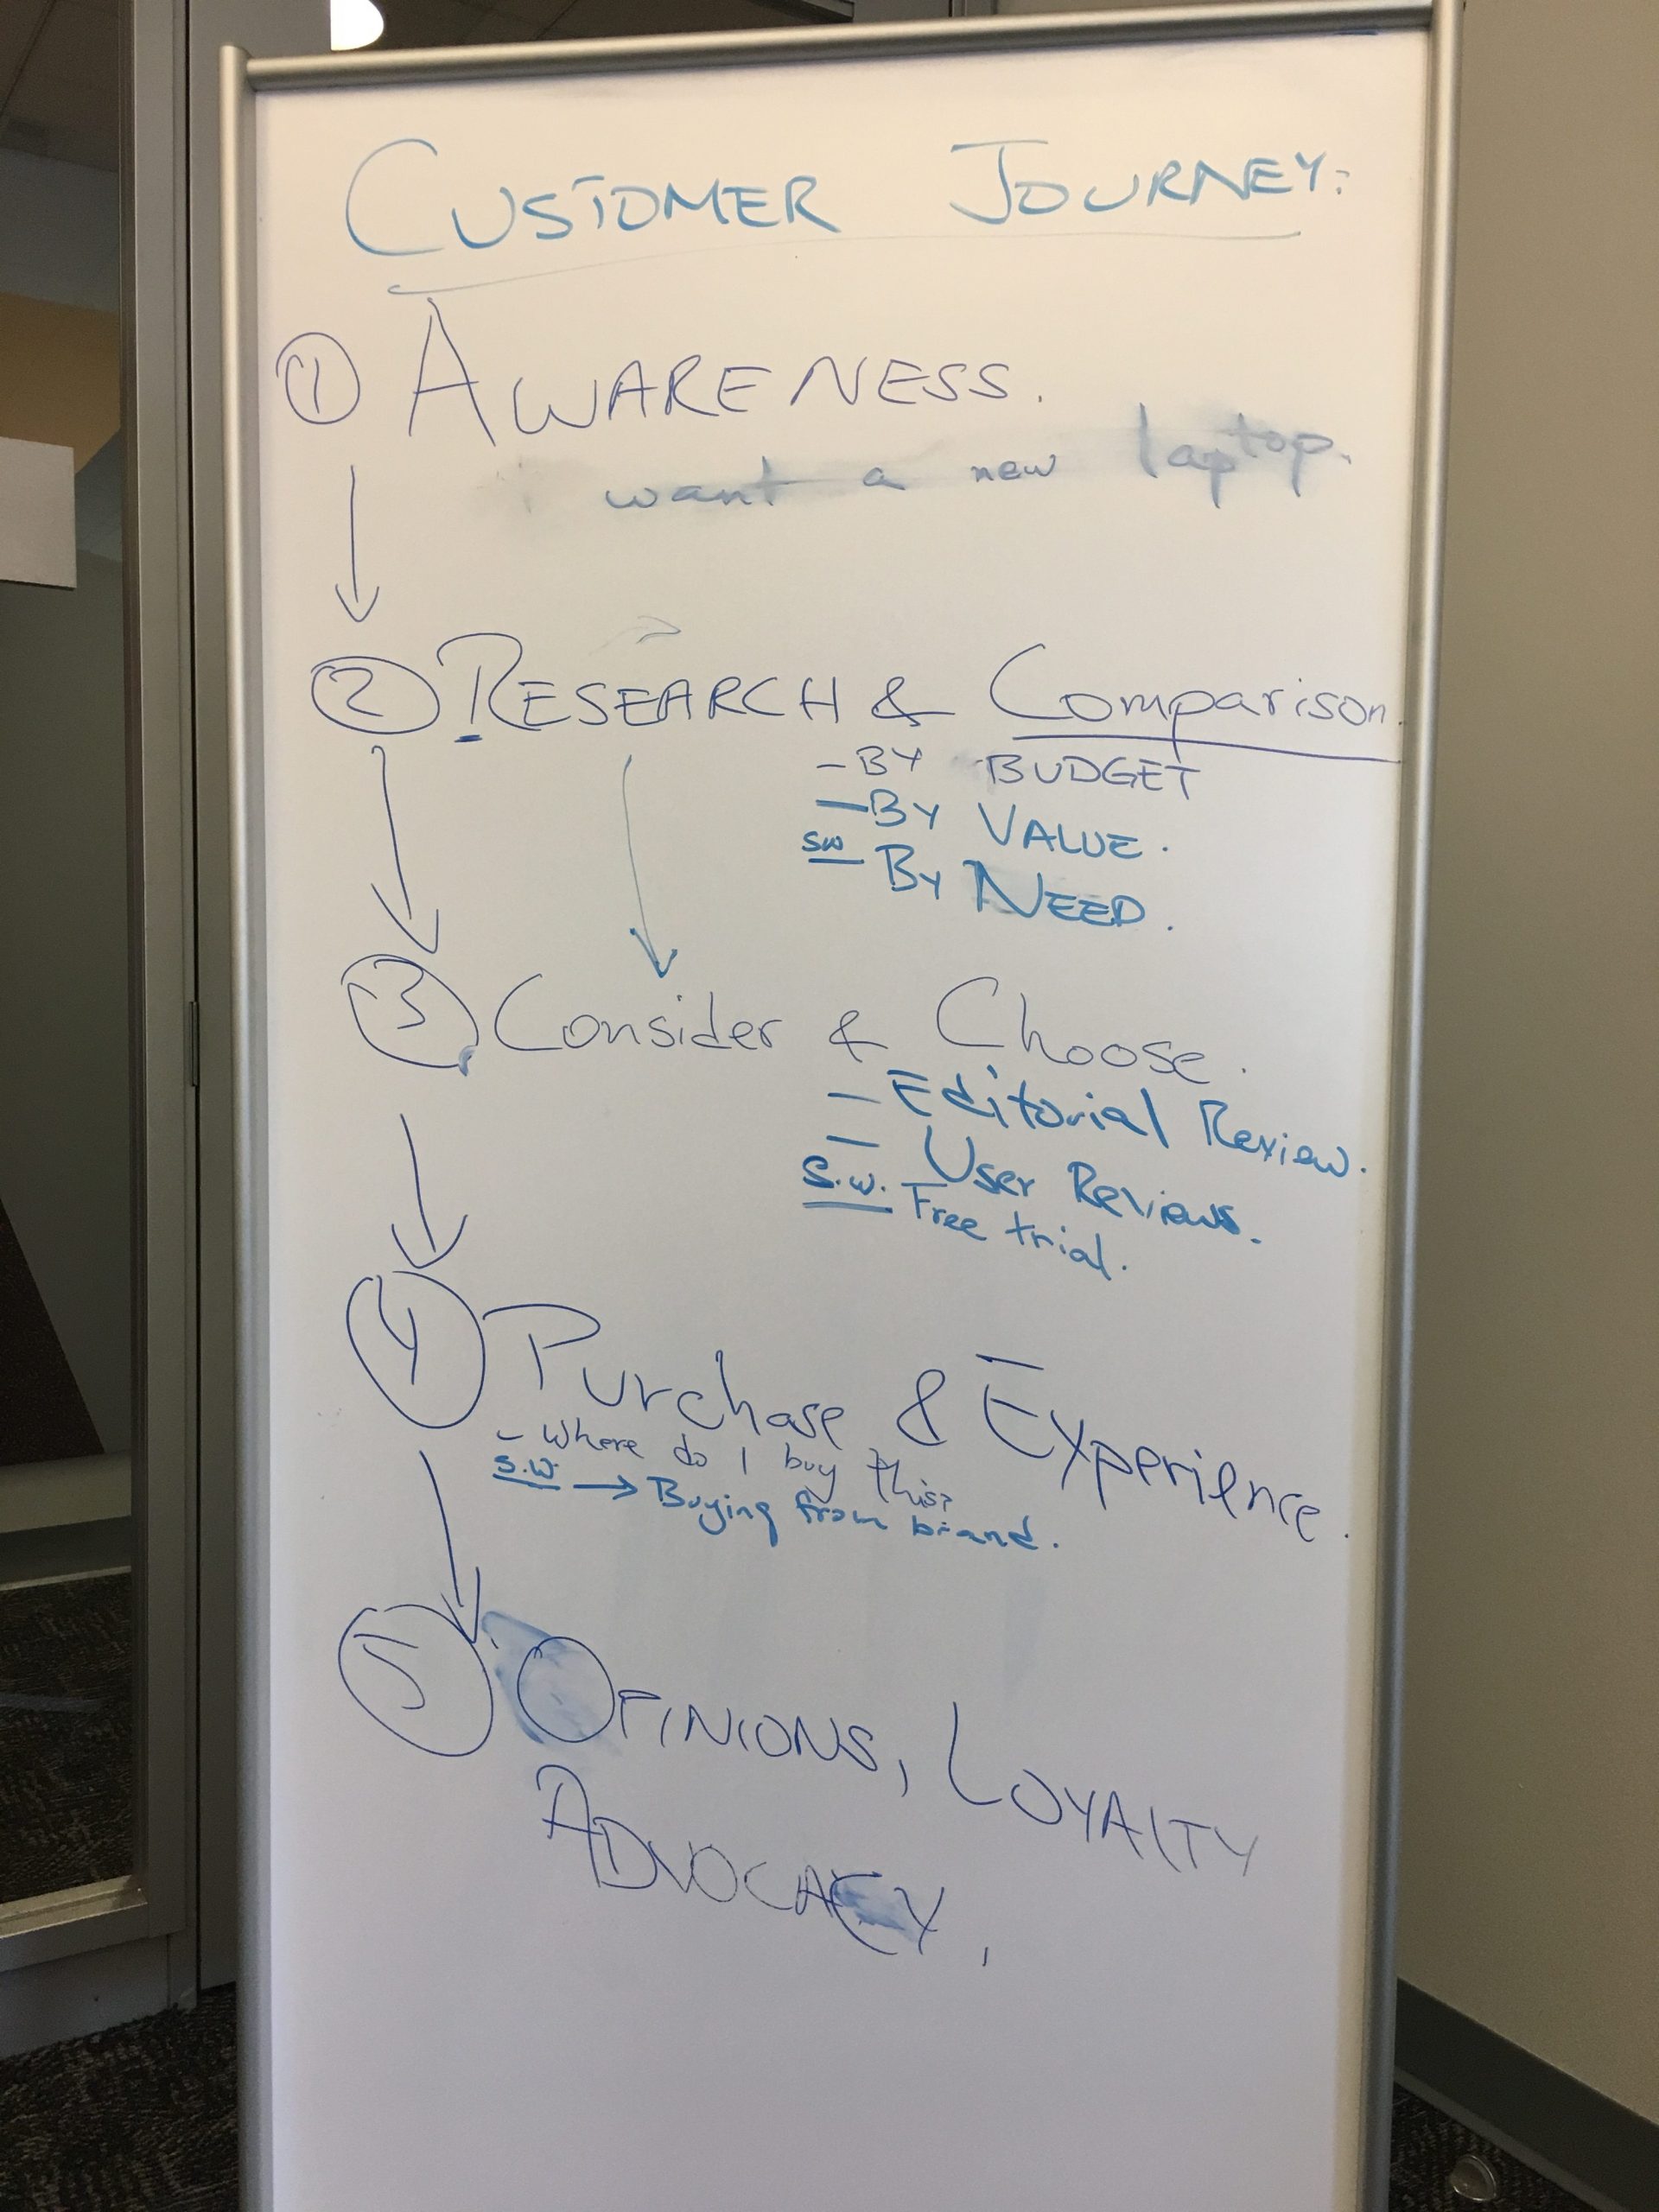 CUSTOMER JOURNEY:
① AWARENESS.
want a new laptop.
② RESEARCH & Comparison.
- BY BUDGET
- By VALUE.
SW - By NEED.
③ Consider & Choose.
- Editorial Review.
- User Reviews.
S.W. - Free trial.
④ Purchase & Experience.
- Where do I buy this?
S.W. → Buying from brand.
⑤ OPINIONS, LOYALTY
ADVOCACY.